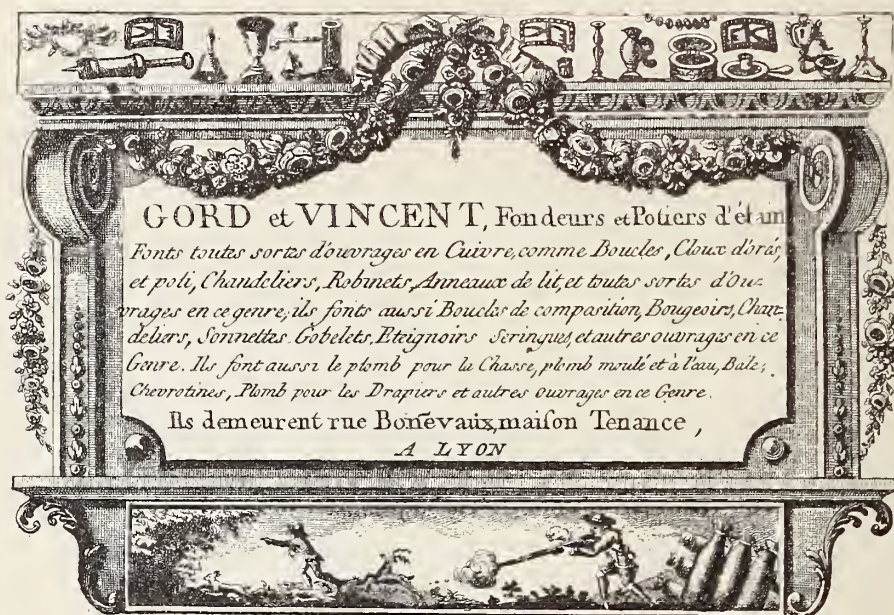 GORD et VINCENT, Fondeurs et Potiers d'étain
Fonts toutes sortes d'ouvrages en Cuivre, comme Boucles, Cloux dorés,
et poli, Chandeliers, Robinets, Anneaux de lit, et toutes sortes d'Ou-
vrages en ce genre, ils fonts aussi Boucles de composition, Bougeoirs, Chan-
deliers, Sonnettes. Gobelets, Eteignoirs Seringues, et autres ouvrages en ce
Genre. Ils font aussi le plomb pour la Chasse, plomb moulé et à l'eau, Bale,
Chevrotines, Plomb pour les Drapiers et autres ouvrages en ce Genre.
Ils demeurent rue Boñevaux, maison Tenance,
A LYON